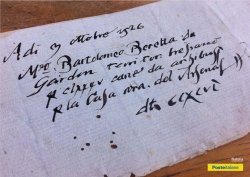 Adi 9 ottobre 1526
Mro Bartolomeo Beretta de
Gardon territor bressano
p clxxxv cane da archibusi
p la Casa ora. del Arsenal
dti cclxxxxvi
Posteitaliane